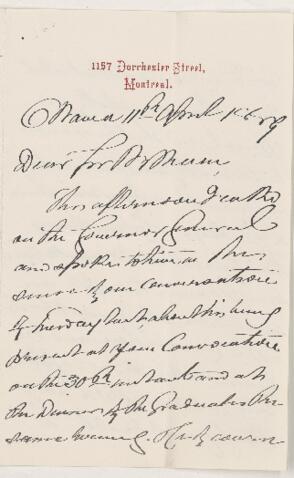 1157 Dorchester Street,
Montreal.
Ottawa 11th April
Dear
This afternoon I called
on the Governor General
and spoke to him in the
sense of our conversation
of Tuesday last about his being
present at your Convocation
on the 30th instant and at
the Dinner by the Graduates the
same evening. His